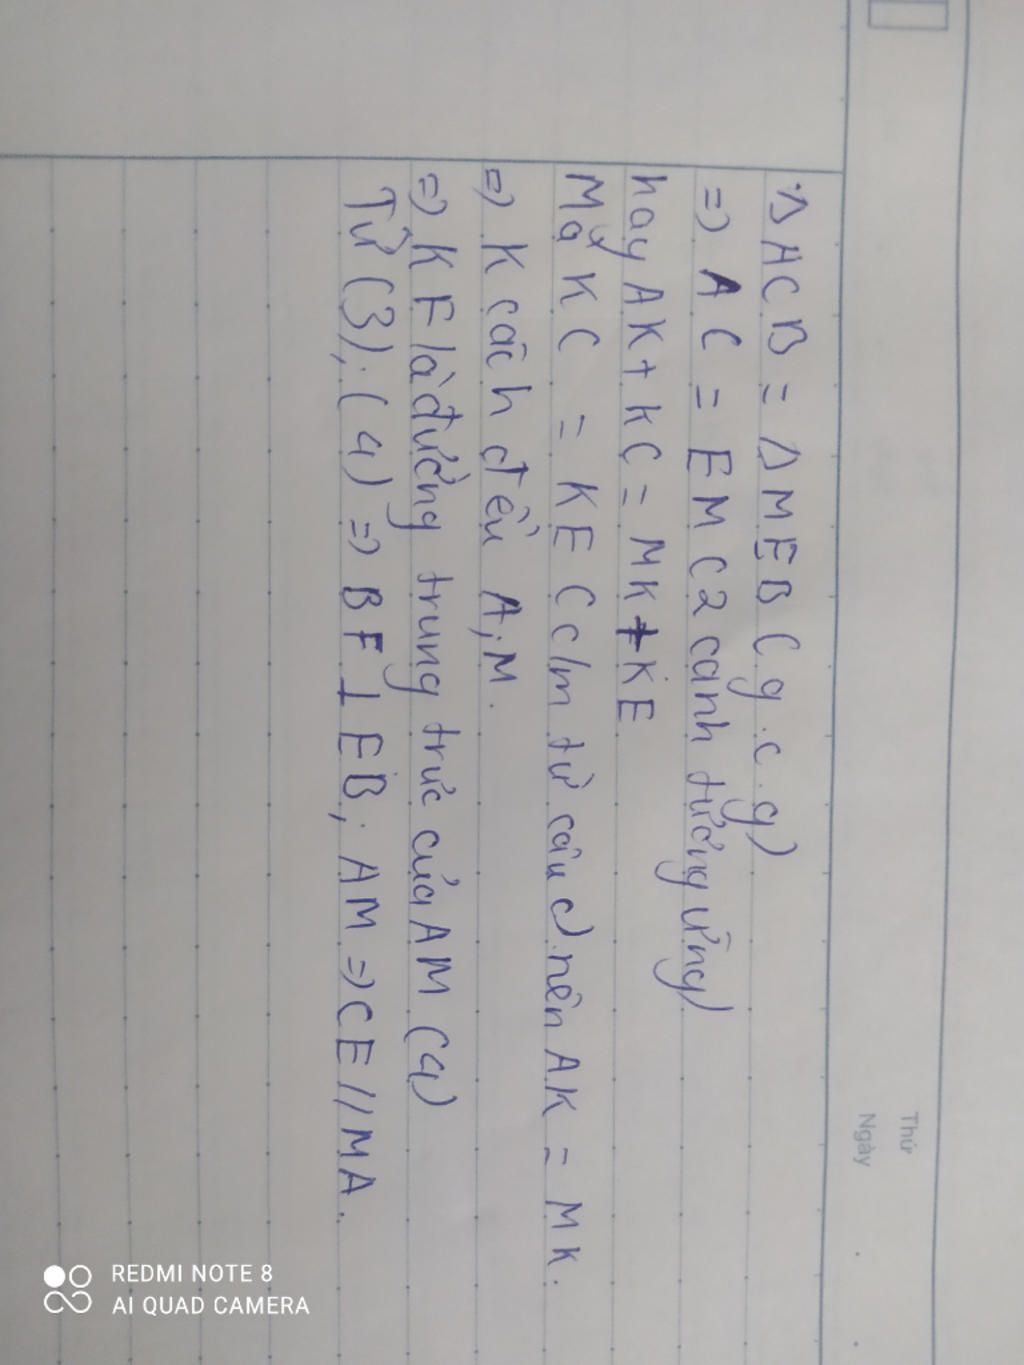 Thứ
Ngày
ΔACB = ΔMEB (g.c.g)
=> AC = EM (2 cạnh tương ứng)
hay AK + KC = MK + KE
Mà KC = KE (c/m từ câu c) nên AK = MK.
=> K cách đều A; M.
=> KF là đường trung trực của AM (4)
Từ (3), (4) => BF ⊥ EB; AM => CE // MA.
REDMI NOTE 8
AI QUAD CAMERA